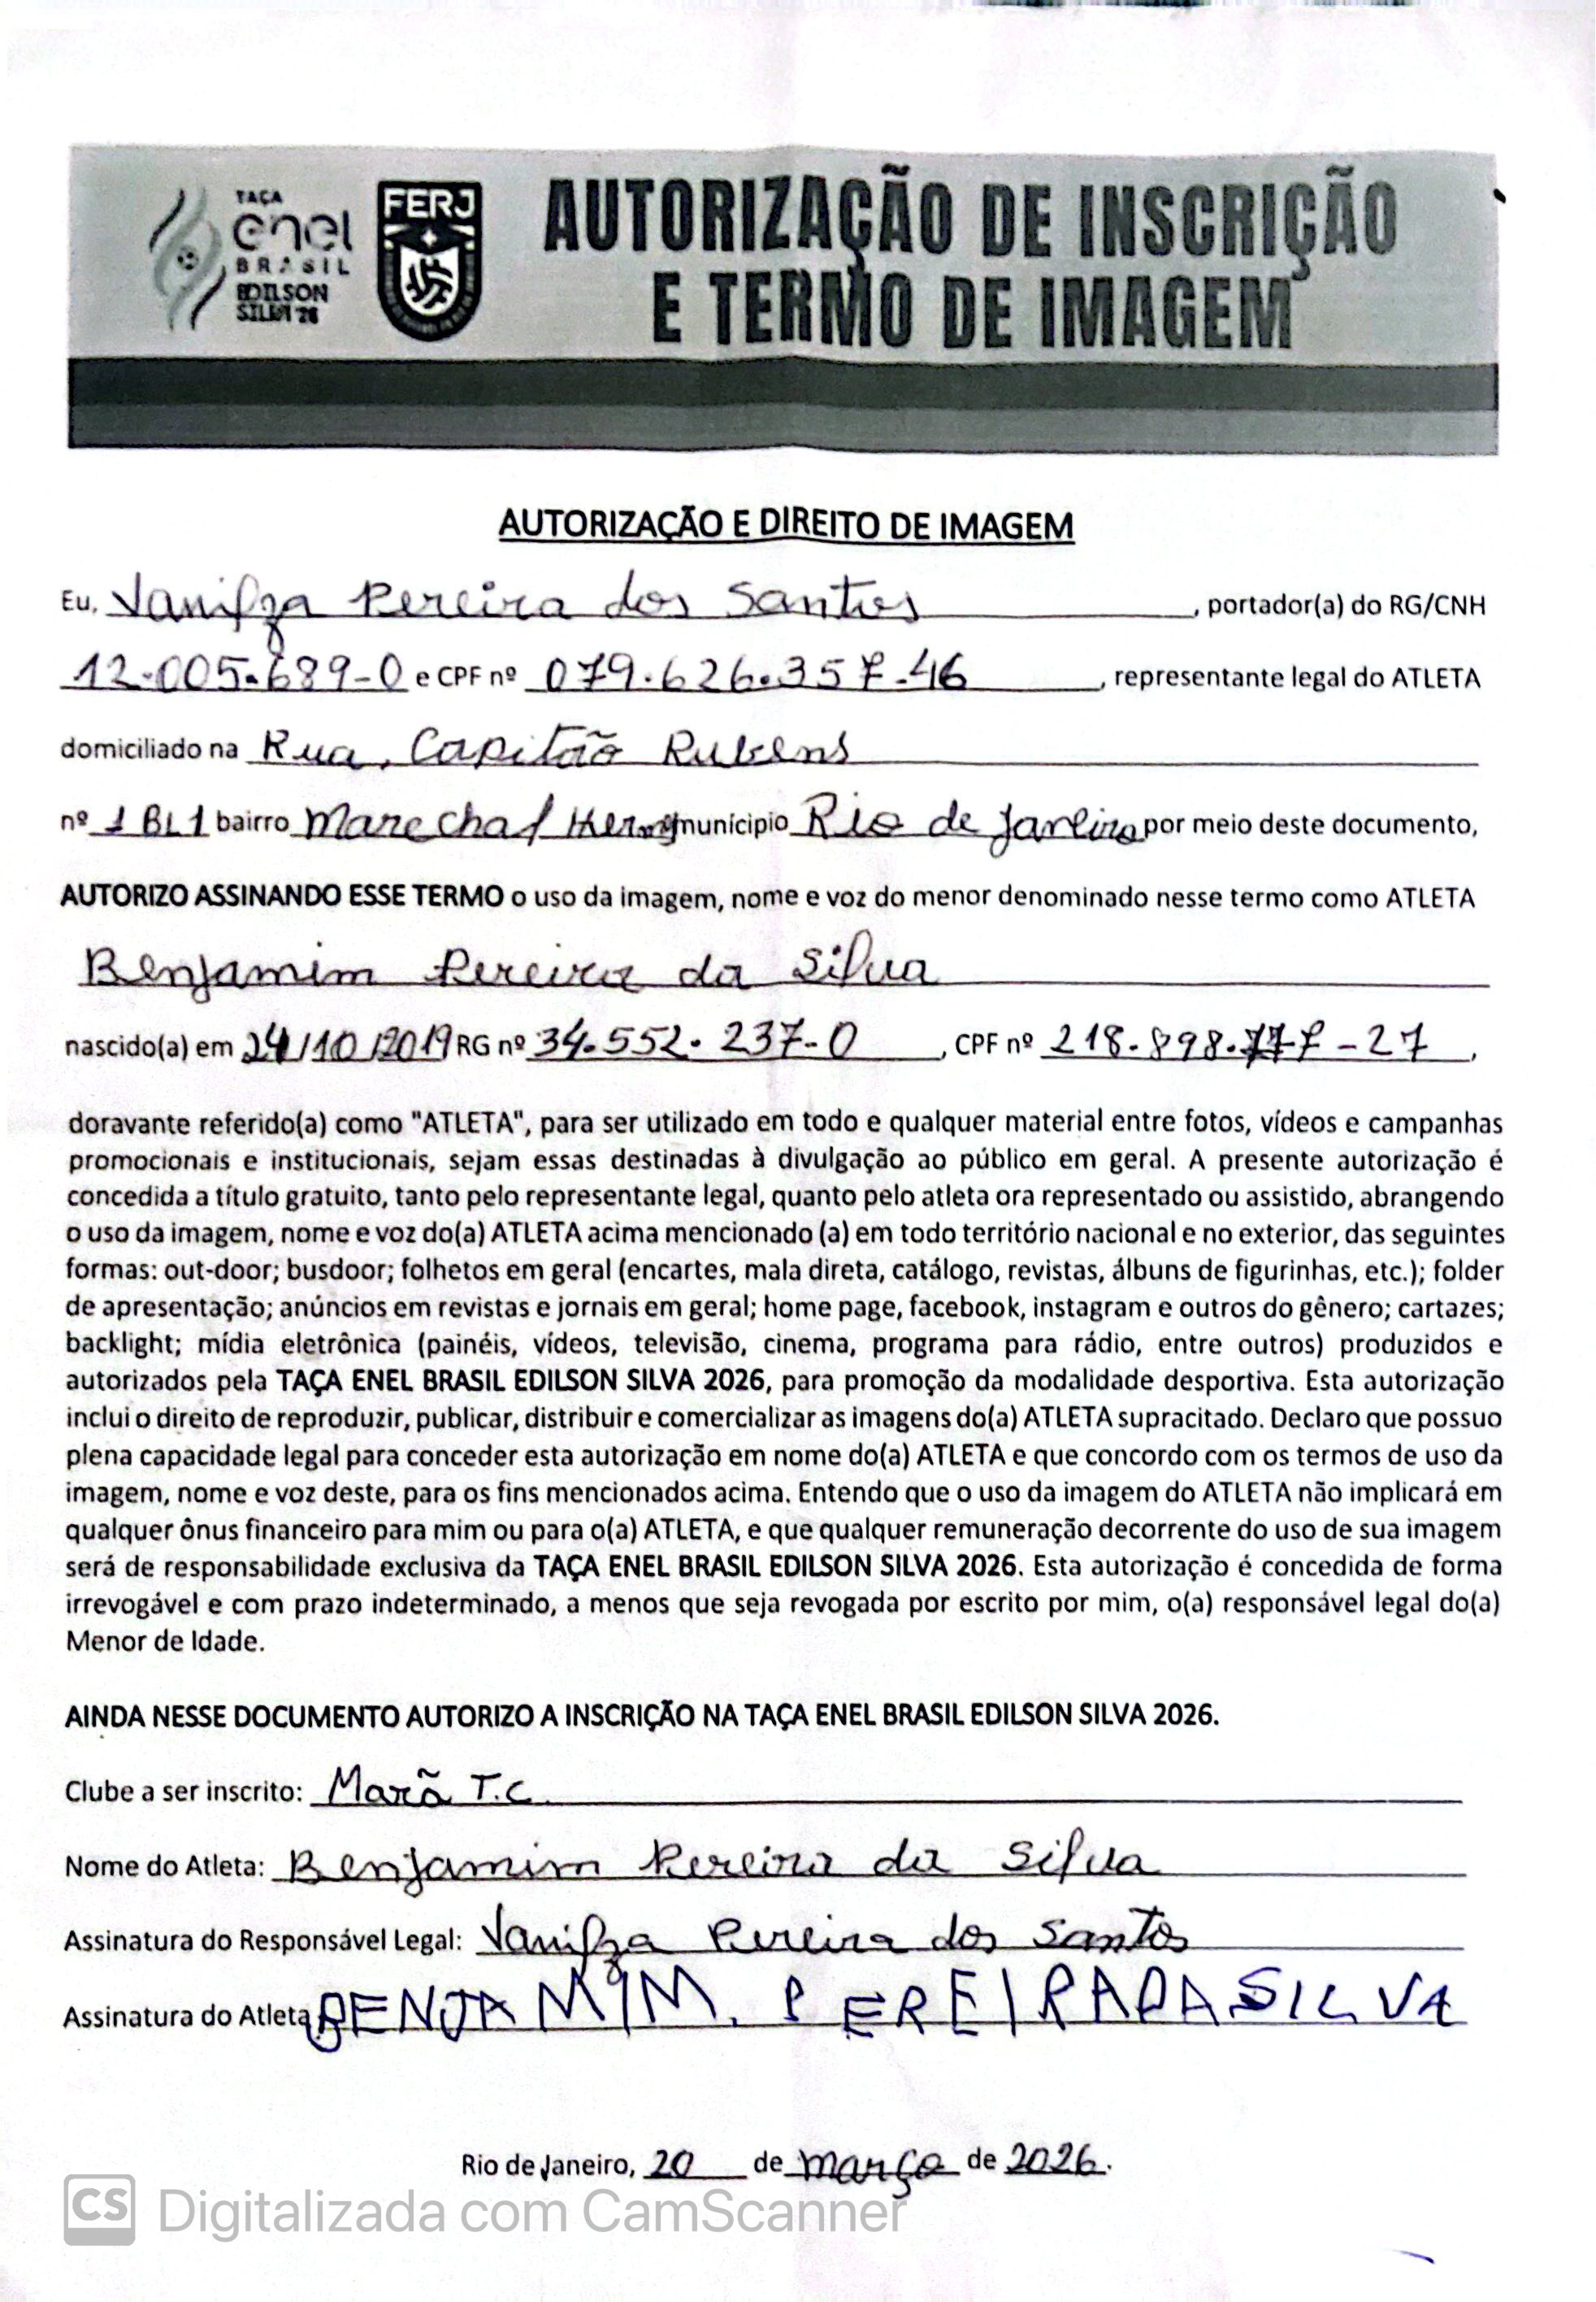 TAÇA
enel
BRASIL
EDILSON
SILVA 26
FERJ
AUTORIZAÇÃO DE INSCRIÇÃO
E TERMO DE IMAGEM
AUTORIZAÇÃO E DIREITO DE IMAGEM
Eu, Vanilza Pereira dos Santos, portador(a) do RG/CNH
12.005.689-0 e CPF nº 079.626.357-46, representante legal do ATLETA
domiciliado na Rua, Capitão Rubens
nº 1 BL1 bairro Marechal Hermes município Rio de Janeiro por meio deste documento,
AUTORIZO ASSINANDO ESSE TERMO o uso da imagem, nome e voz do menor denominado nesse termo como ATLETA
Benjamim Pereira da Silva
nascido(a) em 24/10/2019 RG nº 34.552.237-0, CPF nº 218.898.777-27,
doravante referido(a) como "ATLETA", para ser utilizado em todo e qualquer material entre fotos, vídeos e campanhas
promocionais e institucionais, sejam essas destinadas à divulgação ao público em geral. A presente autorização é
concedida a título gratuito, tanto pelo representante legal, quanto pelo atleta ora representado ou assistido, abrangendo
o uso da imagem, nome e voz do(a) ATLETA acima mencionado (a) em todo território nacional e no exterior, das seguintes
formas: out-door; busdoor; folhetos em geral (encartes, mala direta, catálogo, revistas, álbuns de figurinhas, etc.); folder
de apresentação; anúncios em revistas e jornais em geral; home page, facebook, instagram e outros do gênero; cartazes;
backlight; mídia eletrônica (painéis, vídeos, televisão, cinema, programa para rádio, entre outros) produzidos e
autorizados pela TAÇA ENEL BRASIL EDILSON SILVA 2026, para promoção da modalidade desportiva. Esta autorização
inclui o direito de reproduzir, publicar, distribuir e comercializar as imagens do(a) ATLETA supracitado. Declaro que possuo
plena capacidade legal para conceder esta autorização em nome do(a) ATLETA e que concordo com os termos de uso da
imagem, nome e voz deste, para os fins mencionados acima. Entendo que o uso da imagem do ATLETA não implicará em
qualquer ônus financeiro para mim ou para o(a) ATLETA, e que qualquer remuneração decorrente do uso de sua imagem
será de responsabilidade exclusiva da TAÇA ENEL BRASIL EDILSON SILVA 2026. Esta autorização é concedida de forma
irrevogável e com prazo indeterminado, a menos que seja revogada por escrito por mim, o(a) responsável legal do(a)
Menor de Idade.
AINDA NESSE DOCUMENTO AUTORIZO A INSCRIÇÃO NA TAÇA ENEL BRASIL EDILSON SILVA 2026.
Clube a ser inscrito: Marã T.C.
Nome do Atleta: Benjamim Pereira da Silva
Assinatura do Responsável Legal: Vanilza Pereira dos Santos
Assinatura do Atleta BENJAMIM. PEREIRA DA SILVA
Rio de Janeiro, 20 de março de 2026.
CS Digitalizada com CamScanner